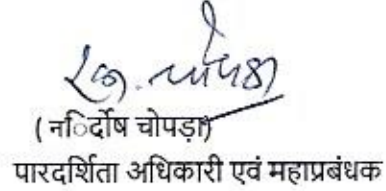 ( नि◌र्दोष चोपड़ा)
पारदर्शिता अधिकारी एवं महाप्रबंधक